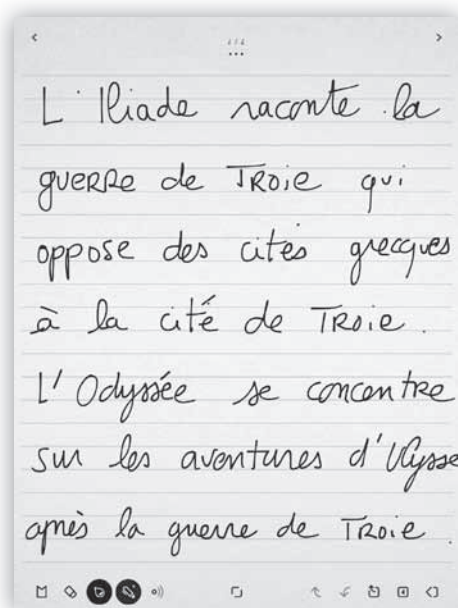 L'Iliade raconte la
guerre de Troie qui
oppose des cités grecques
à la cité de Troie.
L'Odyssée se concentre
sur les aventures d'Ulysse
après la guerre de Troie.